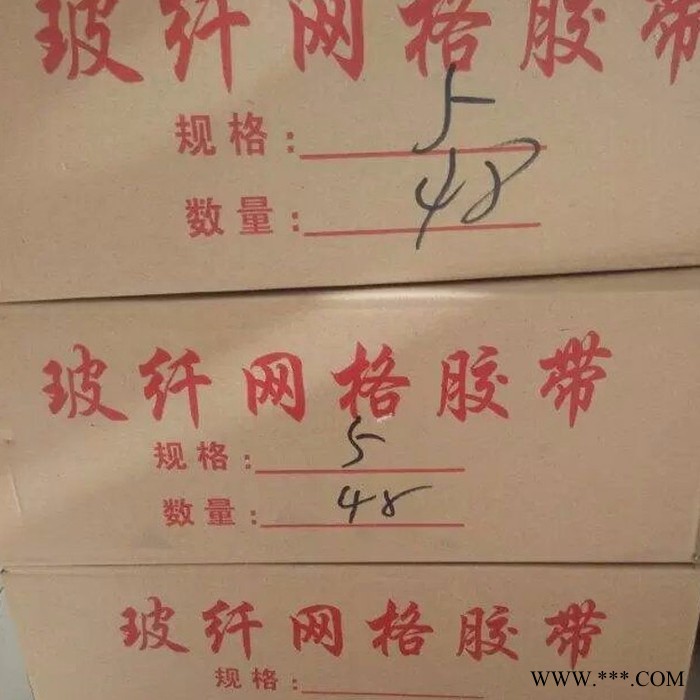 玻纤网格胶带
规格:5
数量:48
玻纤网格胶带
规格:5
数量:48
玻纤网格胶带
规格:
WWW.***.COM